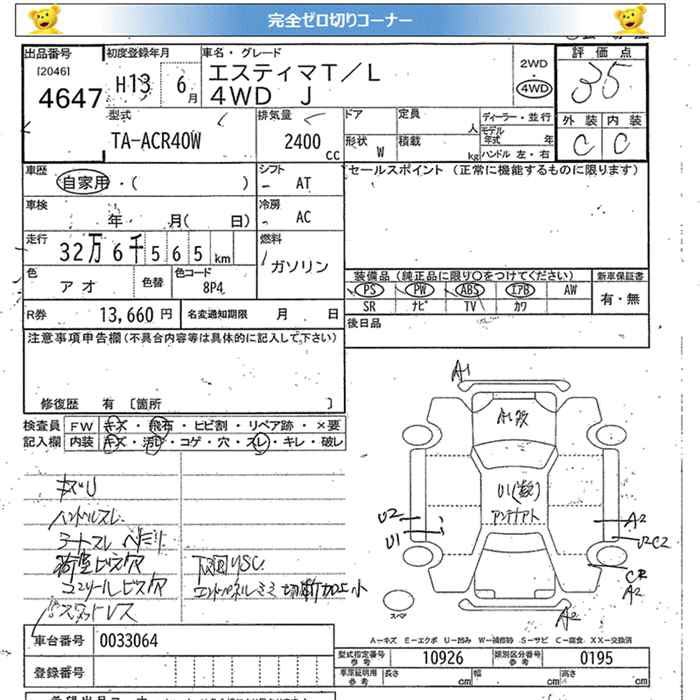 完全ゼロ切りコーナー
出品番号
[2046]
4647
初度登録年月
H13 6月
車名・グレード
エスティマT/L
4WD J
2WD
・
4WD
評価点
35
外装 内装
C C
型式
TA-ACR40W
排気量
2400 cc
ドア
定員 人
形状 W
積載 kg
ディーラー・並行
モデル年式 年
ハンドル 左・右
車歴
自家用・( )
シフト
AT
セールスポイント (正常に機能するものに限ります)
車検
年 月( 日)
冷房
AC
走行
32万6千565km
燃料
ガソリン
色
アオ
色替
色コード
8P4
装備品 (純正品に限り○をつけてください)
新車保証書
PS PW ABS エアB AW
有・無
SR ナビ TV カワ
R券 13,660 円
名変通知期限 月 日
後日品
注意事項申告欄(不具合内容等は具体的に記入して下さい)
修復歴 有 〔箇所 〕
検査員記入欄
FW キズ・飛石・ヒビ割・リペア跡・×要
内装 キズ・汚レ・コゲ・穴・スレ・キレ・破レ
キズU
ハンドルスレ
シートスレ ヘタリ
荷室ビス穴
コンソールビス穴
下廻りSC
エンドパネルミミ切断加工小
A1
A1
U1(数)
アンテナアト
U2
U1
A2
U2C2
A2
A2
スペア
A-キズ E-エクボ U-凹み W-補修跡 S-サビ C-腐食 XX-交換済
車台番号 0033064
登録番号
型式指定番号 参考 10926
類別区分番号 参考 0195
車庫証明用 参考
長さ cm
幅 cm
高さ cm